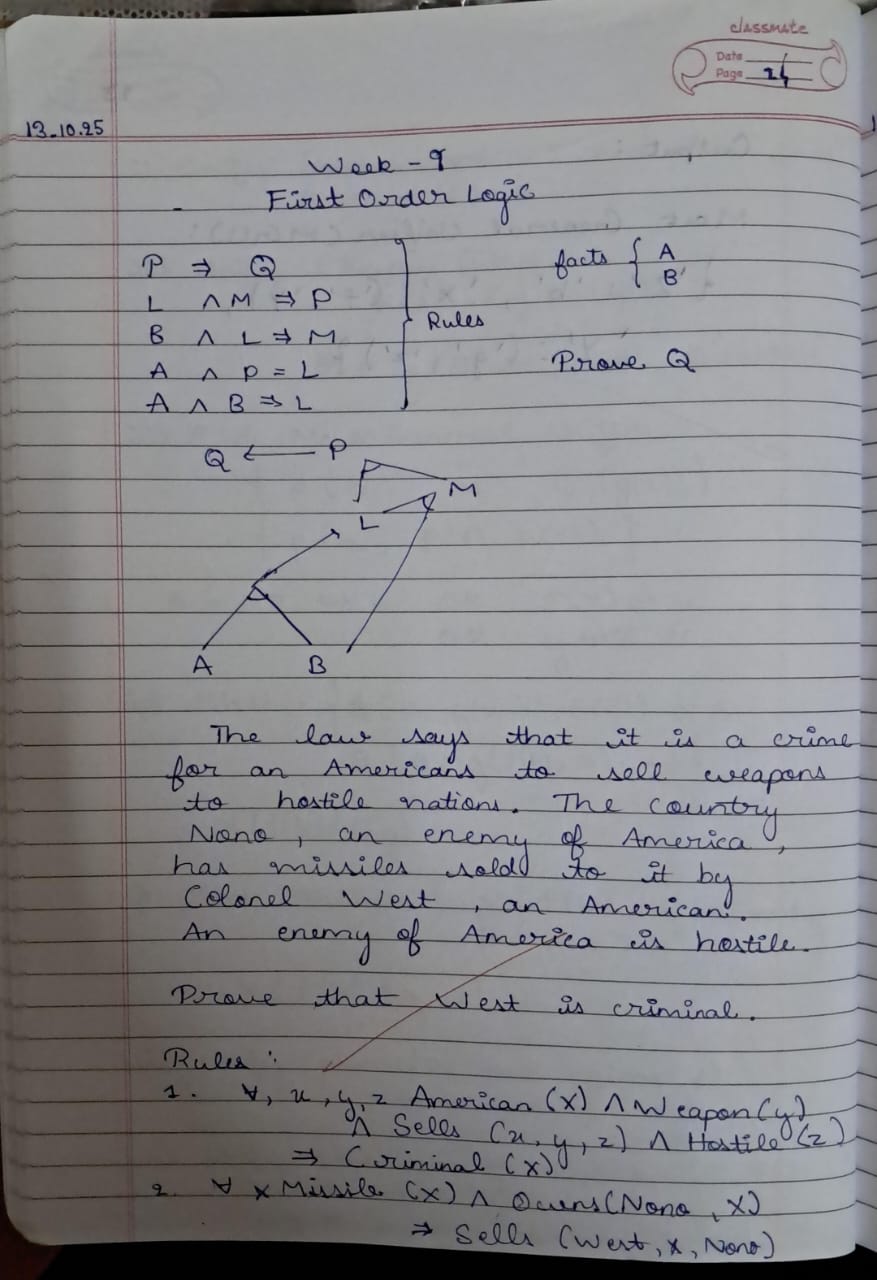 classmate
Date
Page 24
13.10.25
Week - 9
First Order Logic
P ⇒ Q
L ∧ M ⇒ P
B ∧ L ⇒ M
A ∧ P = L
A ∧ B ⇒ L
Rules
facts { A
B
Prove Q
Q ← P
M
L
A B
The law says that it is a crime
for an Americans to sell weapons
to hostile nations. The country
Nono, an enemy of America,
has missiles sold to it by
Colonel West, an American.
An enemy of America is hostile.
Prove that West is criminal.
Rules :
1. ∀, x, y, z American (x) ∧ Weapon (y)
∧ Sells (x, y, z) ∧ Hostile (z)
⇒ Criminal (x)
2. ∀ x Missile (x) ∧ Owens (Nono, x)
⇒ Sells (West, x, Nono)